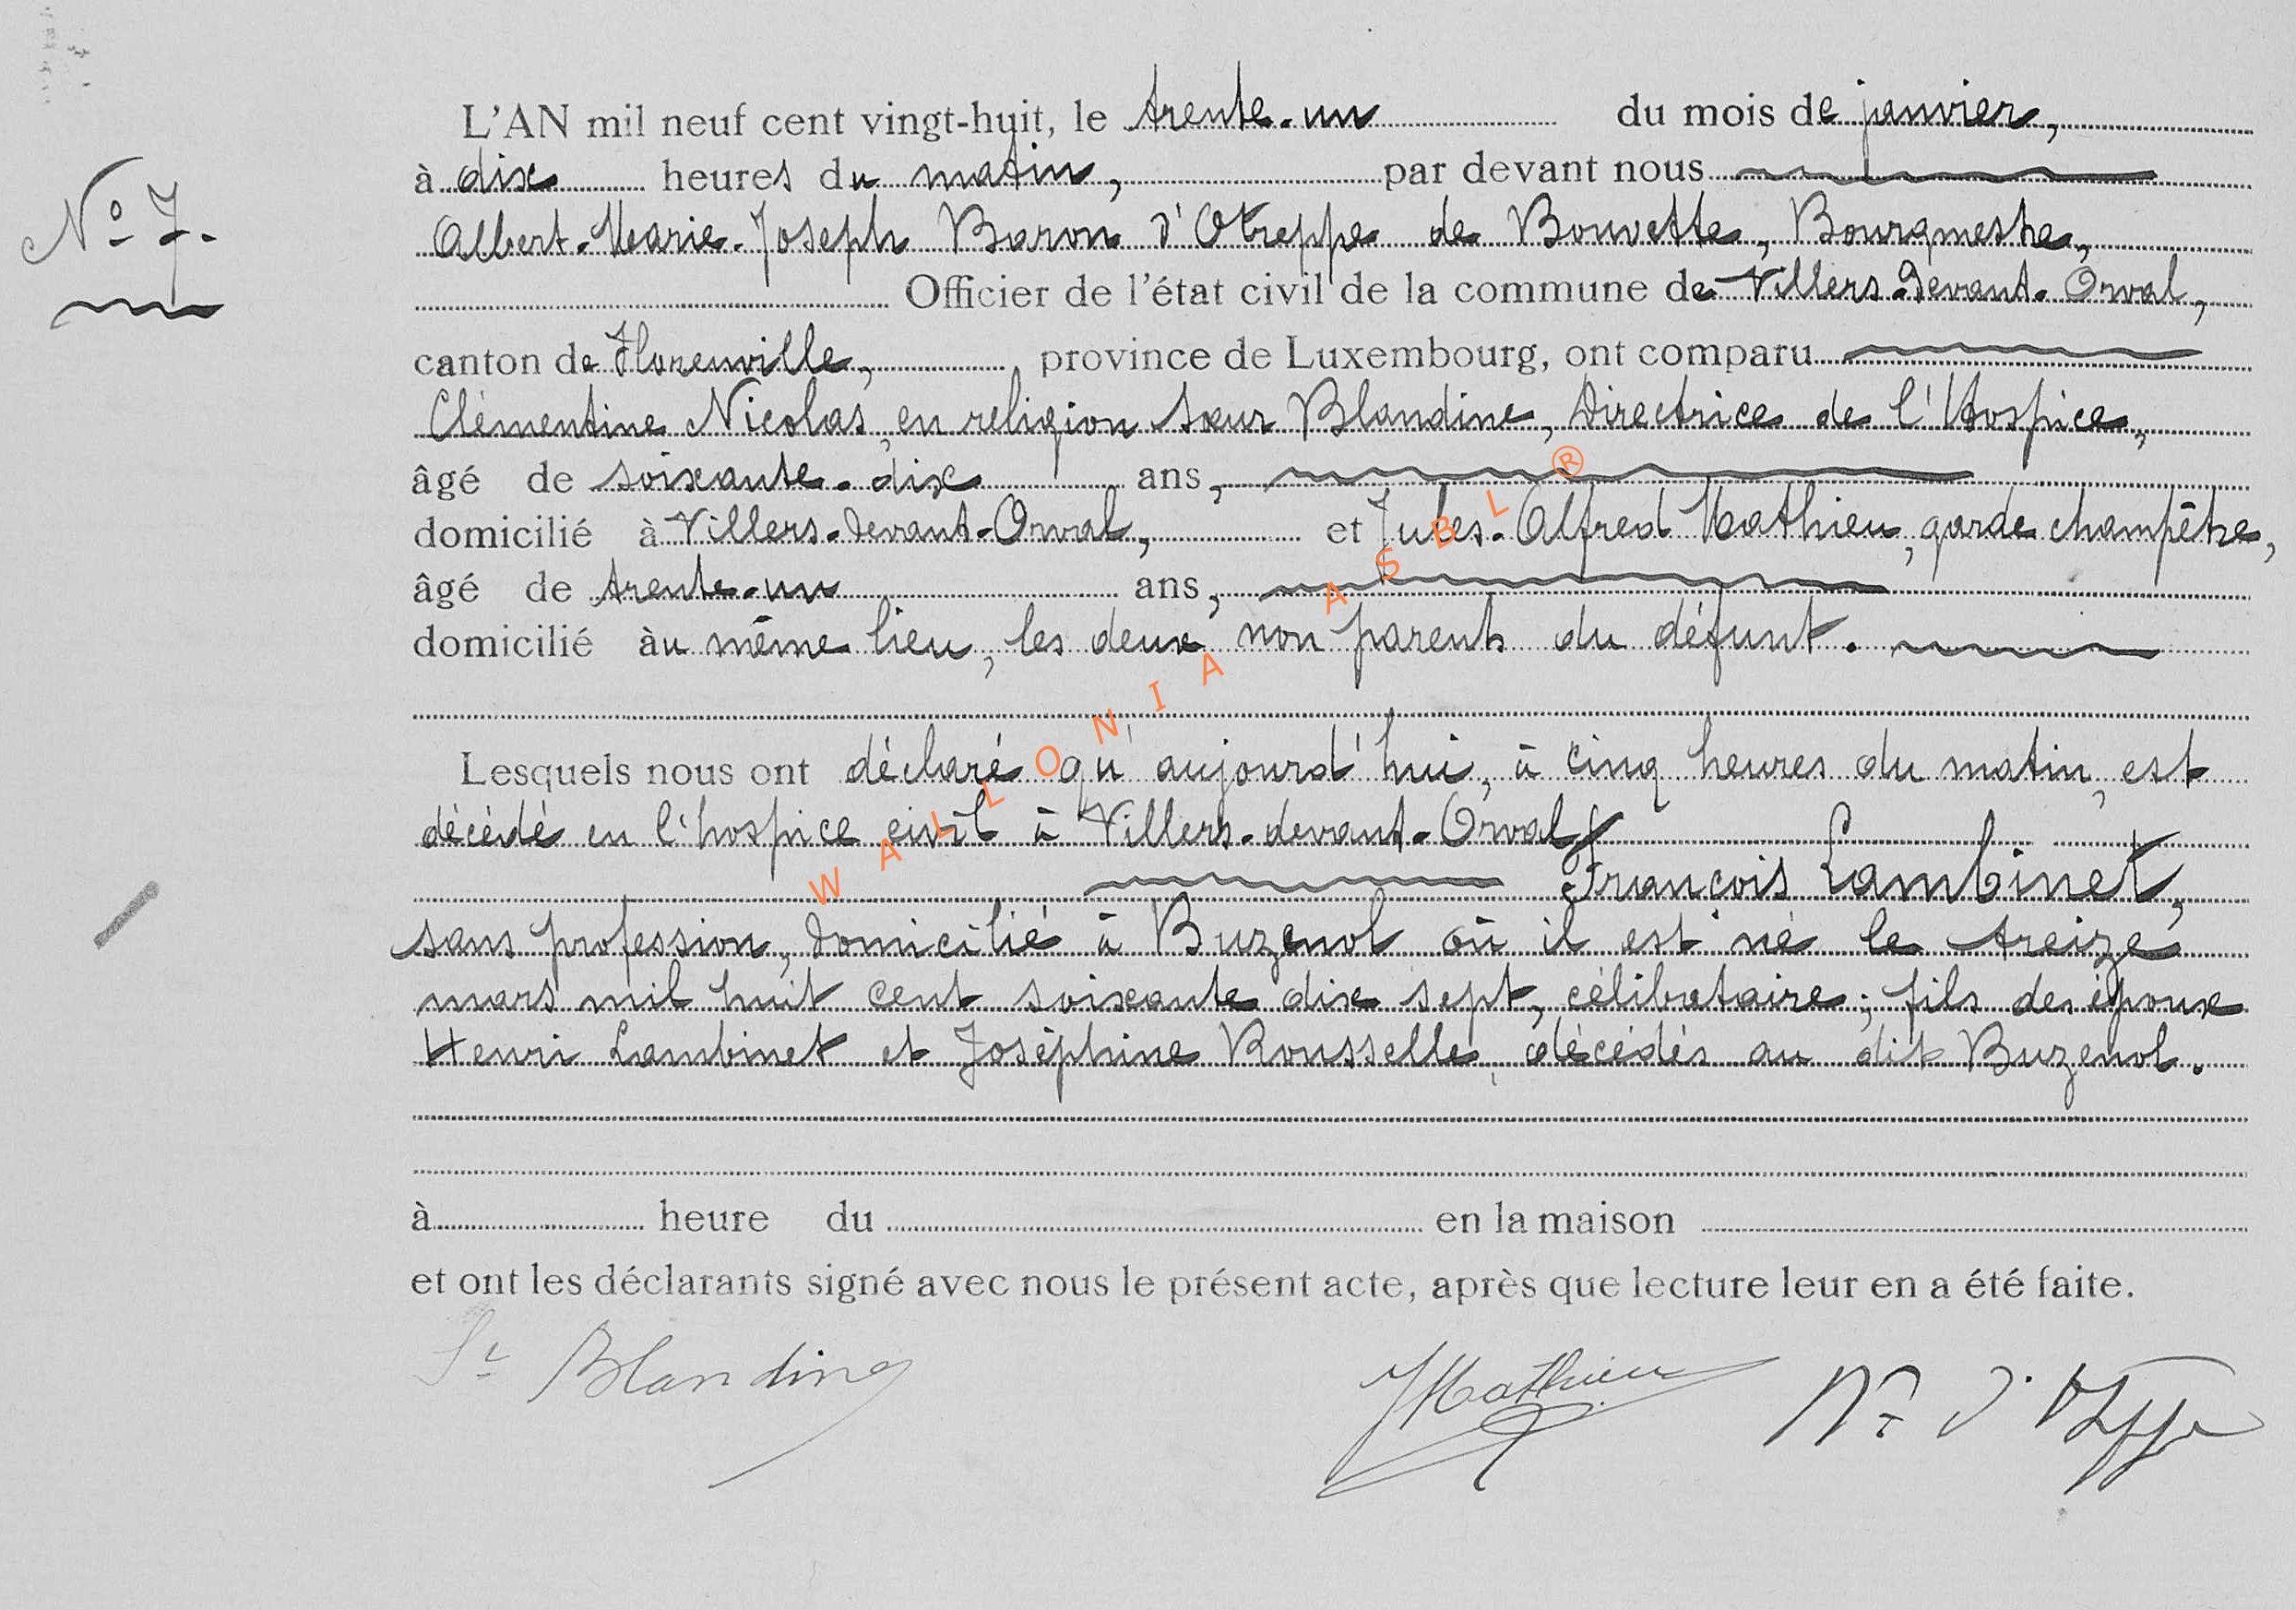 L'AN mil neuf cent vingt-huit, le trente-un du mois de janvier,
à dix heures du matin, par devant nous
N° 7.
Albert-Marie-Joseph Baron d'Otreppe de Bouvette, Bourgmestre,
Officier de l'état civil de la commune de Villers-devant-Orval,
canton de Florenville, province de Luxembourg, ont comparu
Clémentine Nicolas, en religion sœur Blandine, Directrice de l'Hospice,
âgé de soixante-dix ans,
domicilié à Villers-devant-Orval, et Jules-Alfred Mathieu, garde champêtre,
âgé de trente-un ans,
domicilié àu même lieu, les deux non parents du défunt.
Lesquels nous ont déclaré qu'aujourd'hui, à cinq heures du matin, est
décédé en l'hospice civil à Villers-devant-Orval
François Lambinet,
sans profession, domicilié à Buzenol où il est né le treize
mars mil huit cent soixante dix sept, célibataire; fils des époux
Henri Lambinet et Joséphine Rousselle, décédés au dit Buzenol.
à heure du en la maison
et ont les déclarants signé avec nous le présent acte, après que lecture leur en a été faite.
Sr Blandine
JMathieu
Bon d'Otreppe
WALLONIA ASBL ®